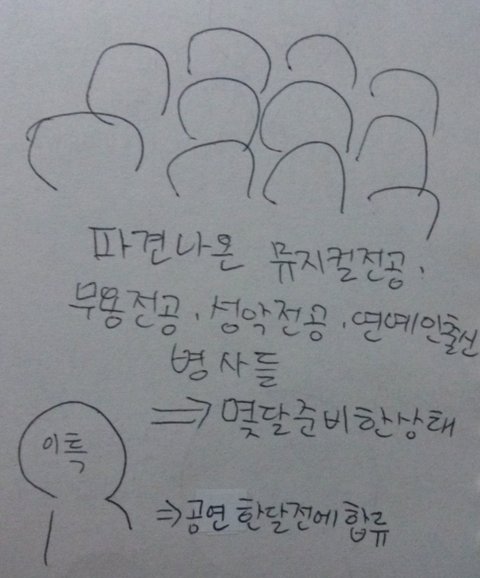 파견나온 뮤지컬전공.
무용전공. 성악전공. 연예인출신
병사들
⇒ 몇달준비한상태
이특
⇒ 공연 한달전에 합류